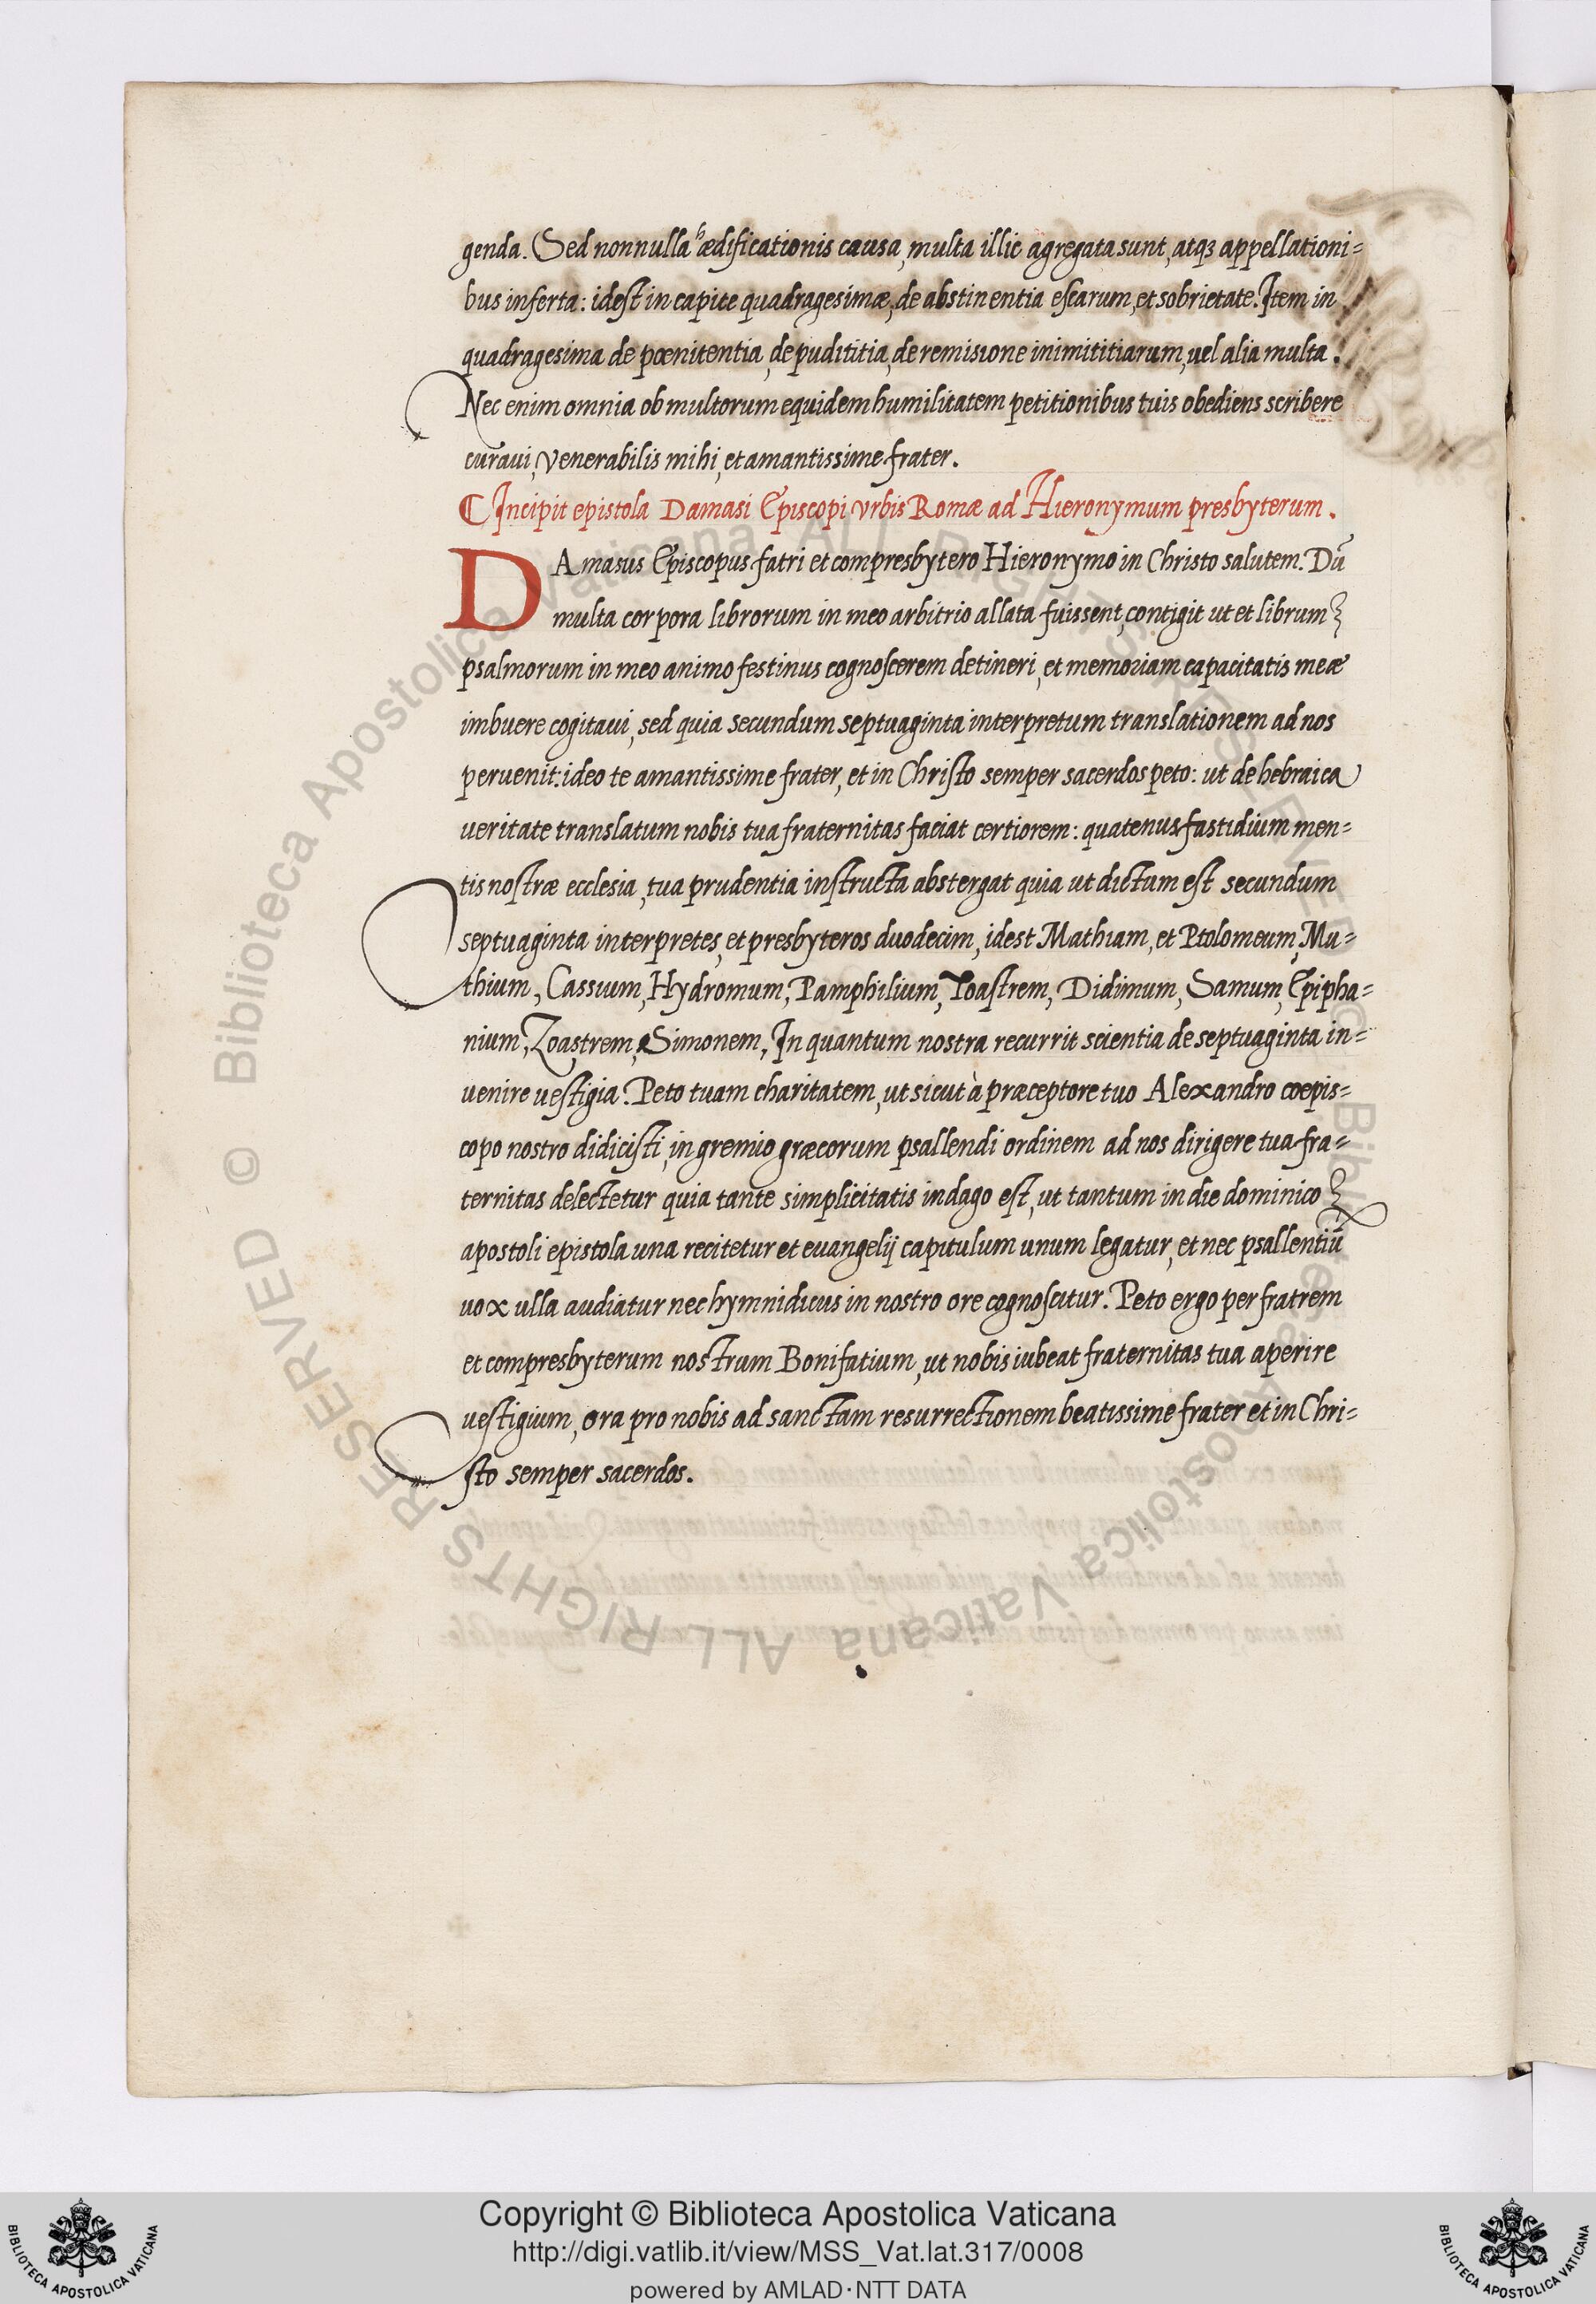 genda. Sed nonnulla ędificationis causa, multa illic agregata sunt, atqꝫ appellationi-
bus inserta: idest in capite quadragesimæ, de abstinentia escarum, et sobrietate. Item in
quadragesima de pœnitentia, de pudititia, de remisione inimititiarum, uel alia multa.
Nec enim omnia ob multorum equidem humilitatem petitionibus tuis obediens scribere
curaui, venerabilis mihi, et amantissime frater.
Incipit epistola Damasi Episcopi vrbis Romæ ad Hieronymum presbyterum.
DAmasus Episcopus fatri et compresbytero Hieronymo in Christo salutem. Dũ
multa corpora librorum in meo arbitrio allata fuissent, contigit ut et librum
psalmorum in meo animo festinus cognoscerem detineri, et memoriam capacitatis meæ
imbuere cogitaui, sed quia secundum septuaginta interpretum translationem ad nos
peruenit: ideo te amantissime frater, et in Christo semper sacerdos peto: ut de hebraica
ueritate translatum nobis tua fraternitas faciat certiorem: quatenus fastidium men-
tis nostræ ecclesia, tua prudentia instructa abstergat quia ut dictam est secundum
septuaginta interpretes, et presbyteros duodecim, idest Mathiam, et Ptolomeum, Mu-
thium, Cassium, Hydromum, Pamphilium, Toastrem, Didimum, Samum, Epipha-
nium, Zoastrem, Simonem, In quantum nostra recurrit scientia de septuaginta in-
uenire uestigia. Peto tuam charitatem, ut sicut à præceptore tuo Alexandro coepis-
copo nostro didicisti, in gremio græcorum psallendi ordinem ad nos dirigere tua fra-
ternitas delectetur quia tante simplicitatis indago est, ut tantum in die dominico
apostoli epistola una recitetur et euangelij capitulum unum legatur, et nec psallentiũ
uox ulla audiatur nec hymnidicus in nostro ore cognoscitur. Peto ergo per fratrem
et compresbyterum nostrum Bonifatium, ut nobis iubeat fraternitas tua aperire
uestigium, ora pro nobis ad sanctam resurrectionem beatissime frater et in Chri-
sto semper sacerdos.
© Biblioteca Apostolica Vaticana ALL RIGHTS RESERVED © Biblioteca Apostolica Vaticana ALL RIGHTS RESERVED
Copyright © Biblioteca Apostolica Vaticana
http://digi.vatlib.it/view/MSS_Vat.lat.317/0008
powered by AMLAD·NTT DATA
BIBLIOTECA APOSTOLICA VATICANA
BIBLIOTECA APOSTOLICA VATICANA